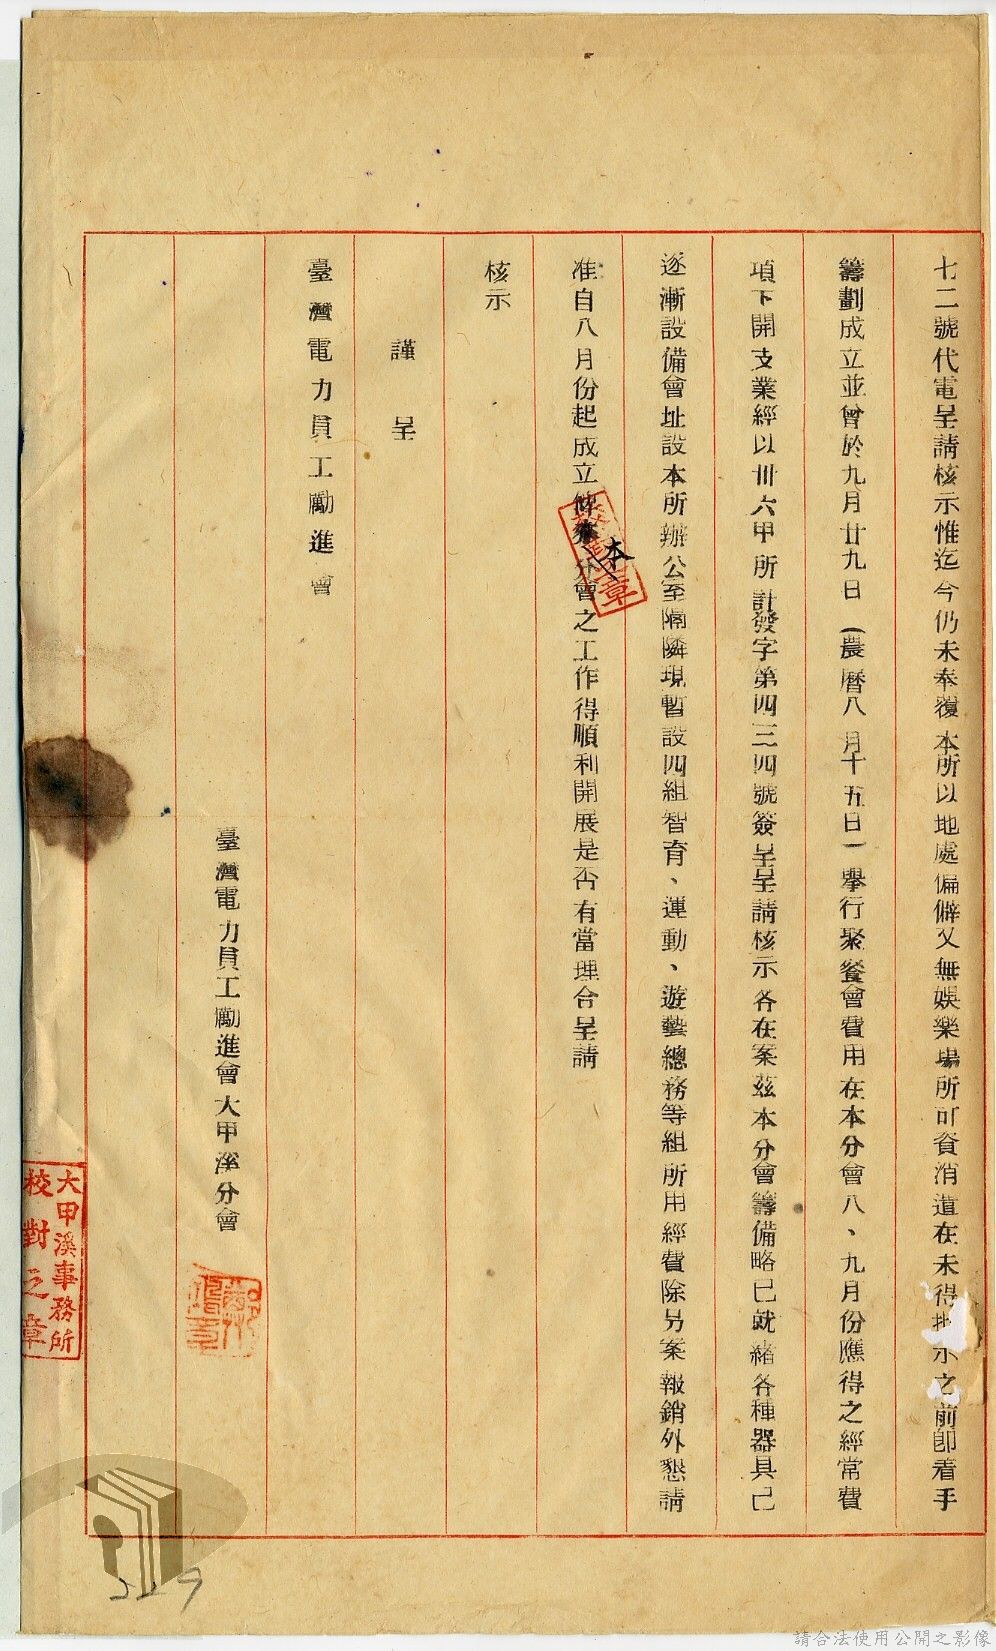 七二號代電呈請核示惟迄今仍未奉覆本所以地處偏僻又無娛樂場所可資消遣在未得示之前卽着手
籌劃成立並曾於九月廿九日（農曆八月十五日）舉行聚餐會費用在本分會八、九月份應得之經常費
項下開支業經以卅六甲所計發字第四三四號簽呈呈請核示各在案茲本分會籌備略已就緒各種器具已
逐漸設備會址設本所辦公室隔隣現暫設四組智育、運動、遊藝總務等組所用經費除另案報銷外懇請
准自八月份起成立本分會之工作得順利開展是否有當理合呈請
核示
謹呈
臺灣電力員工勵進會
臺灣電力員工勵進會大甲溪分會
大甲溪事務所
校對之章
章
229
請合法使用公開之影像